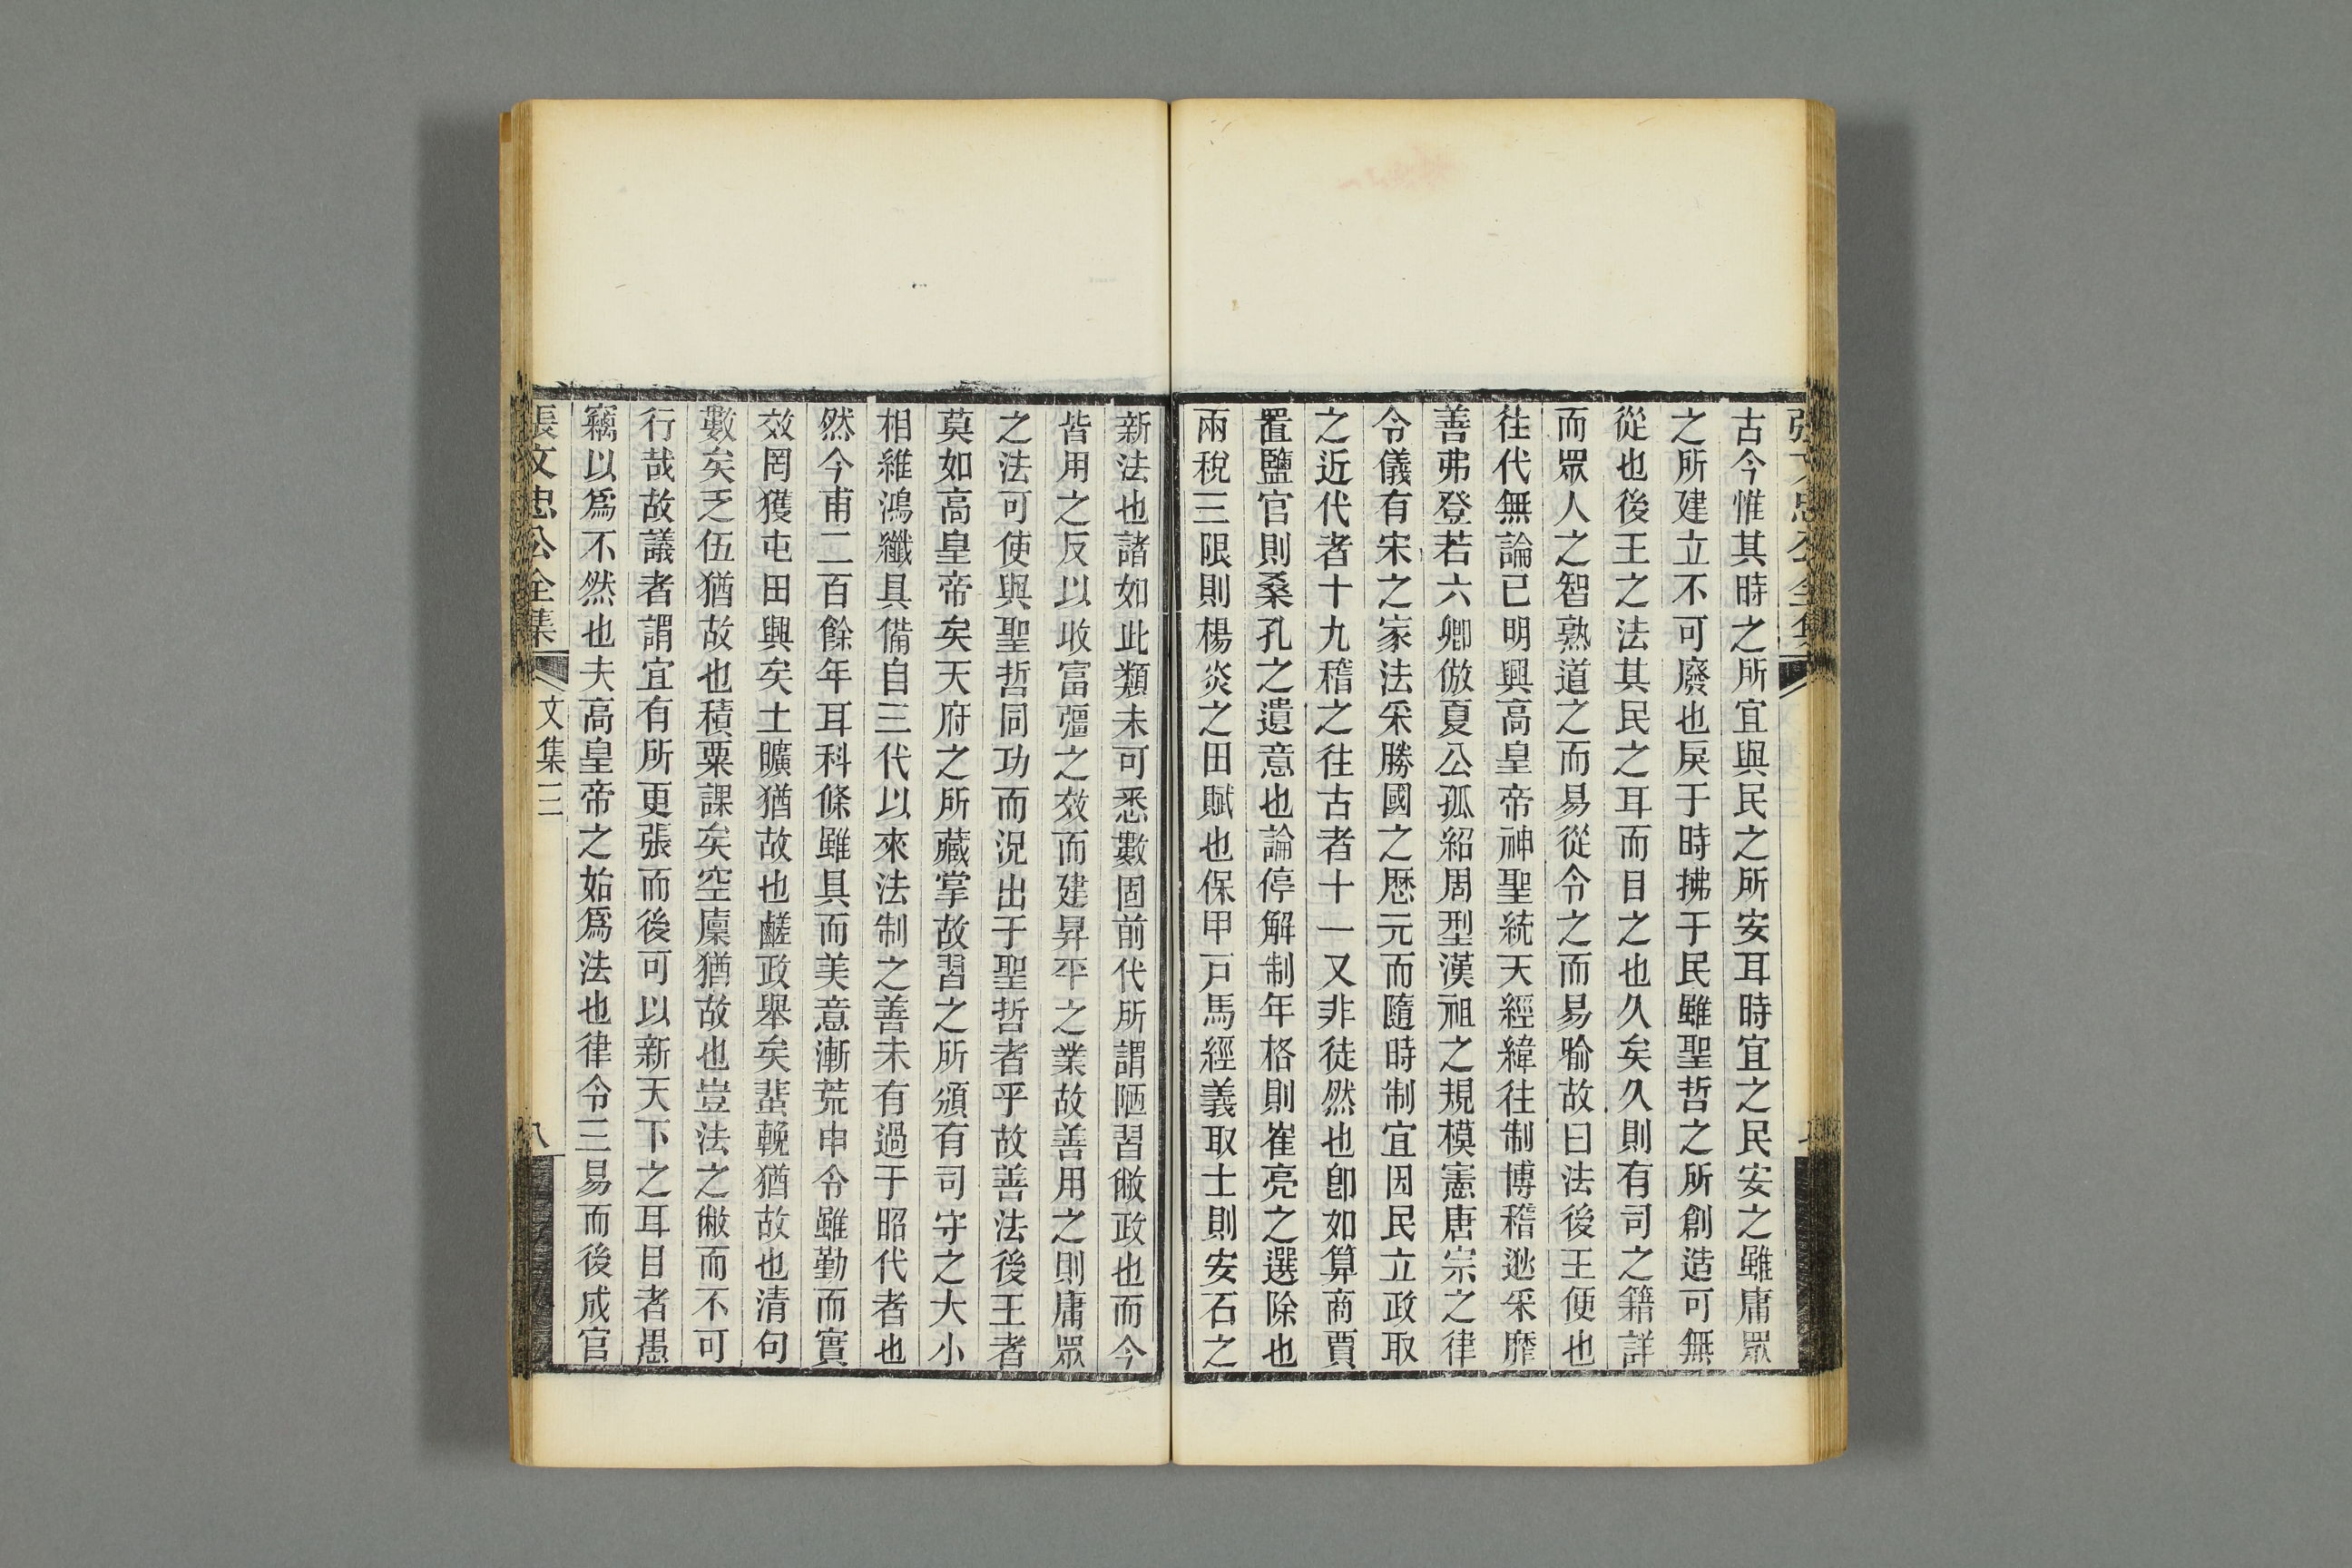 古今惟其時之所宜與民之所安耳時宜之民安之雖庸眾
之所建立不可廢也戾于時拂于民雖聖哲之所創造可無
從也後王之法其民之耳而目之也久矣久則有司之籍詳
而眾人之智熟道之而易從令之而易喻故曰法後王便也
往代無論已明興高皇帝神聖統天經緯往制博稽逖采靡
善弗登若六卿倣夏公孤紹周型漢祖之規模憲唐宗之律
令儀有宋之家法采勝國之歷元而隨時制宜因民立政取
之近代者十九稽之往古者十一又非徒然也卽如算商賈
置鹽官則桑孔之遺意也論停解制年格則崔亮之選除也
兩稅三限則楊炎之田賦也保甲戸馬經義取士則安石之
新法也諸如此類未可悉數固前代所謂陋習敝政也而今
皆用之反以收富彊之效而建昇平之業故善用之則庸眾
之法可使與聖哲同功而況出于聖哲者乎故善法後王者
莫如高皇帝矣天府之所藏掌故習之所頒有司守之大小
相維鴻纖具備自三代以來法制之善未有過于昭代者也
然今甫二百餘年耳科條雖具而美意漸荒申令雖勤而實
效罔獲屯田興矣土曠猶故也鹺政舉矣蜚輓猶故也清句
數矣乏伍猶故也積粟課矣空廩猶故也豈法之敝而不可
行哉故議者謂宜有所更張而後可以新天下之耳目者愚
竊以爲不然也夫高皇帝之始爲法也律令三易而後成官
張文忠公全集 文集三 八